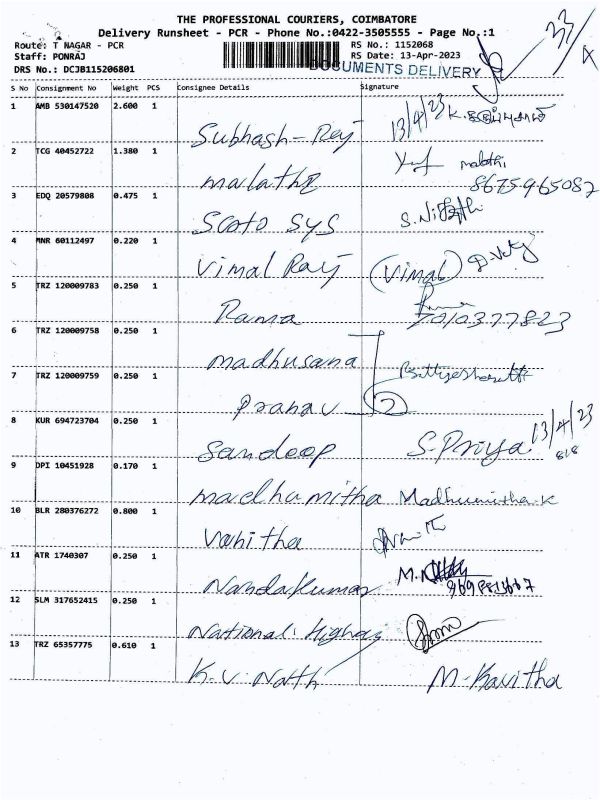 THE PROFESSIONAL COURIERS, COIMBATORE
Delivery Runsheet - PCR - Phone No.:0422-3505555 - Page No.:1
Route: T NAGAR - PCR RS No.: 1152068
Staff: PONRAJ RS Date: 13-Apr-2023
DRS No.: DCJB115206801 DOCUMENTS DELIVERY
S No Consignment No Weight PCS Consignee Details Signature
1 AMB 530147520 2.600 1 Subhash-Raj 13/4/23
2 TCG 40452722 1.380 1 malathi malathi 8675965087
3 EDQ 20579808 0.475 1 Scoto sys
4 MNR 60112497 0.220 1 Vimal Raj (Vimal)
5 TRZ 120009783 0.250 1 Rama 7010377823
6 TRZ 120009758 0.250 1 madhusana
7 TRZ 120009759 0.250 1 Pranav
8 KUR 694723704 0.250 1 Sandeep S-Priya 13/4/23
9 DPI 10451928 0.170 1 madhumitha Madhumitha-K
10 BLR 280376272 0.800 1 Vanitha
11 ATR 1740307 0.250 1 Nandakumar
12 SLM 317652415 0.250 1 National
13 TRZ 65357775 0.610 1 K.V. Nath M-Kavitha